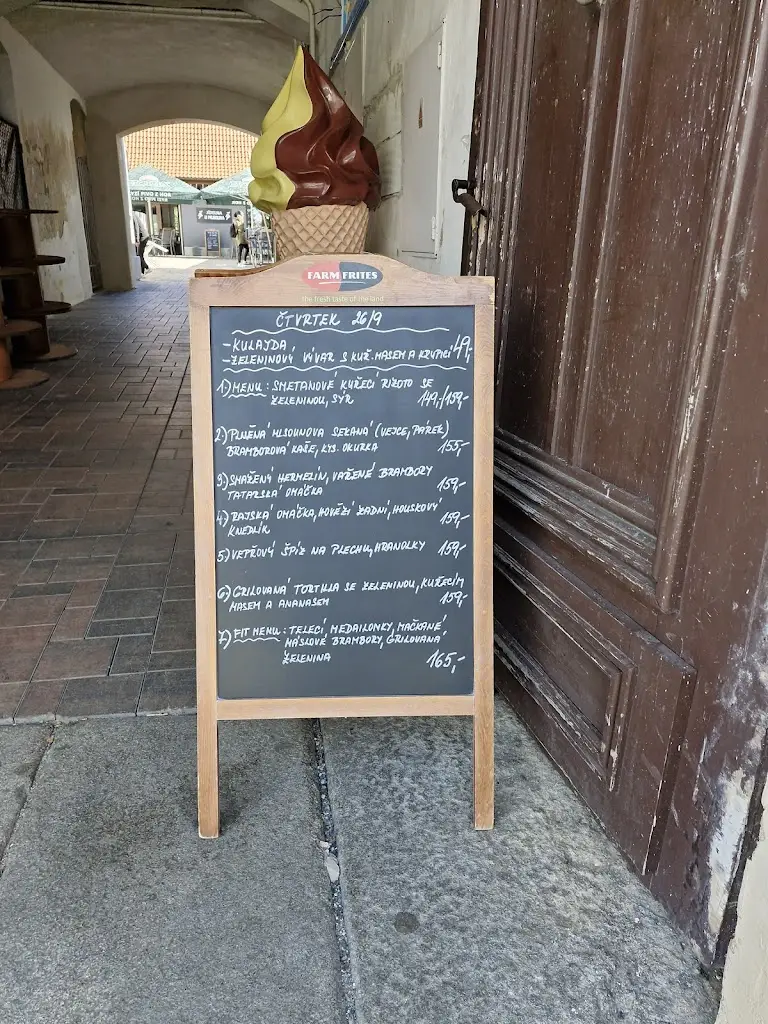 FARM FRITES
the fresh taste of the land
ČTVRTEK 26/9
- KULAJDA
- ZELENINOVÝ VÝVAR S KUŘ. MASEM A KRUPICÍ 49,-
1.) MENU : SMETANOVÉ KUŘECÍ RIZOTO SE
ZELENINOU, SÝR 149,-/159,-
2.) PLNĚNÁ SEKANÁ (VEJCE, PÁREK)
BRAMBOROVÁ KAŠE, KYS. OKURKA 155,-
3.) SMAŽENÝ HERMELÍN, VAŘENÉ BRAMBORY
TATARSKÁ OMÁČKA 159,-
4.) RAJSKÁ OMÁČKA, HOVĚZÍ ZADNÍ, HOUSKOVÝ
KNEDLÍK 159,-
5.) VEPŘOVÝ ŠPÍZ NA PLECHU, HRANOLKY 159,-
6.) GRILOVANÁ TORTILLA SE ZELENINOU, KUŘECÍM
MASEM A ANANASEM 159,-
7.) FIT MENU : TELECÍ MEDAILONKY, MAČKANÉ
MÁSLOVÉ BRAMBORY, GRILOVANÁ
ZELENINA 165,-